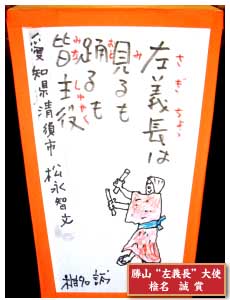 左義長は
さぎちょう
見るも
み
踊るも
おど
皆主役
みなしゅやく
愛知県清須市 松永智文
椎名 誠
勝山“左義長”大使
椎名 誠 賞